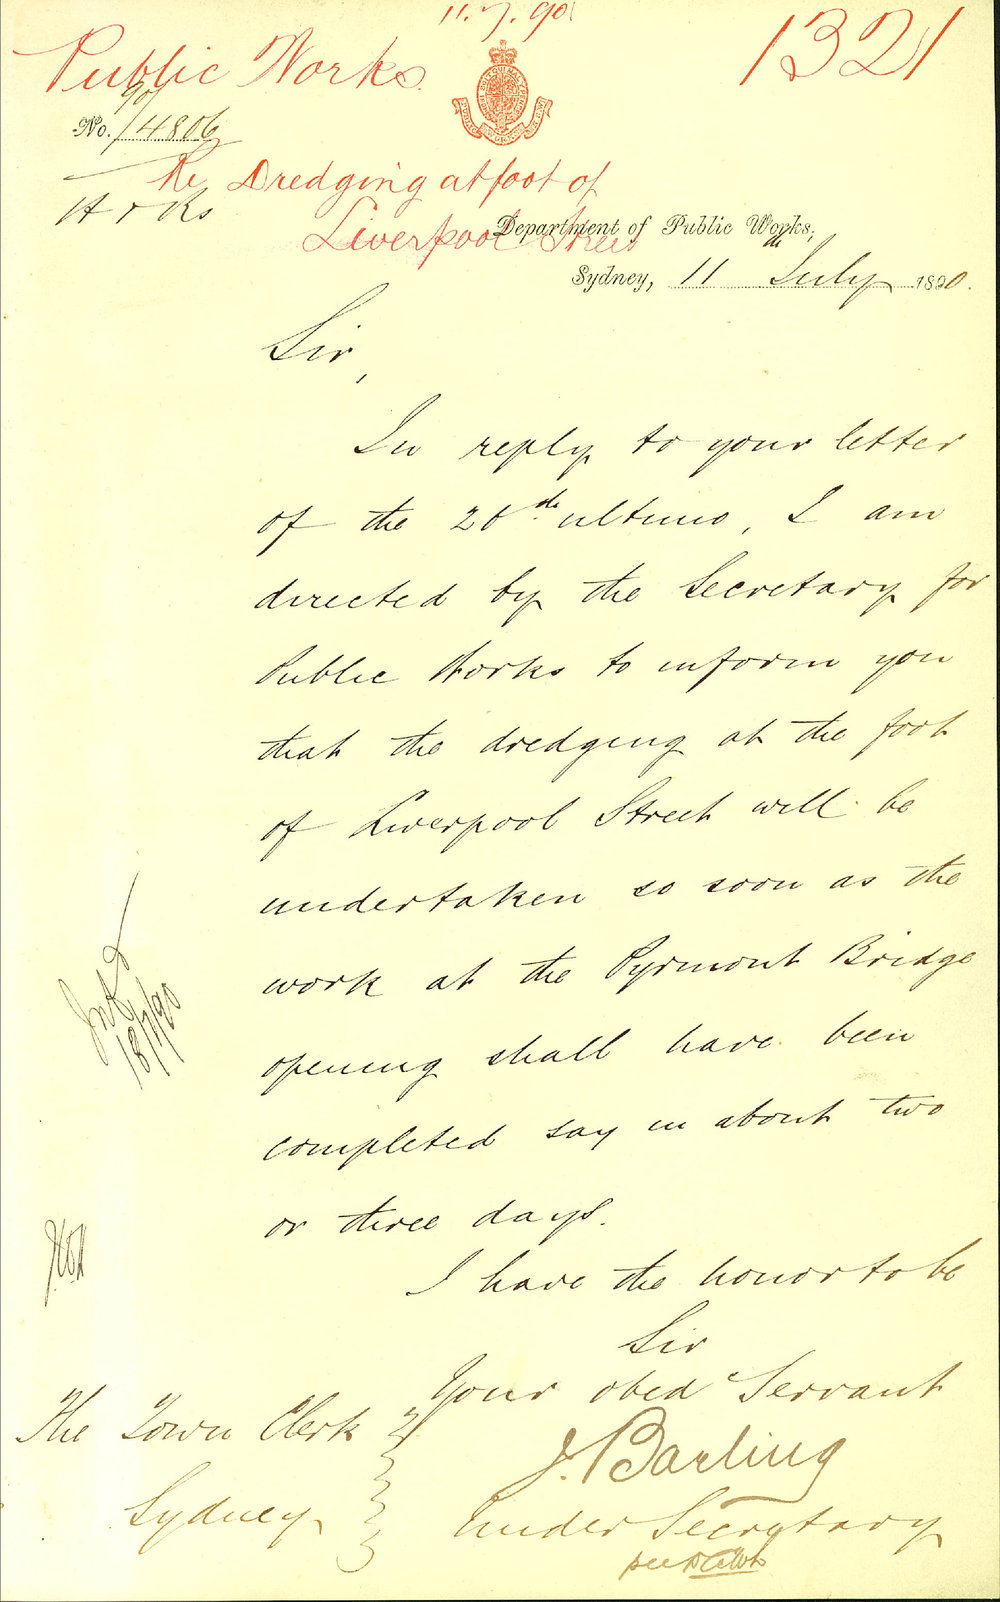 11.7.90
Public Works
1321
90/
No. 14806
Re Dredging at foot of
Liverpool Street
Department of Public Works,
Sydney, 11th July 1890.
Sir,
In reply to your letter
of the 26th ultimo, I am
directed by the Secretary for
Public Works to inform you
that the dredging at the foot
of Liverpool Street will be
undertaken so soon as the
work at the Pyrmont Bridge
opening shall have been
completed say in about two
or three days.
I have the honor to be
Sir
Your obed Servant
J. Barling
Under Secretary
The Town Clerk
Sydney
18/7/90